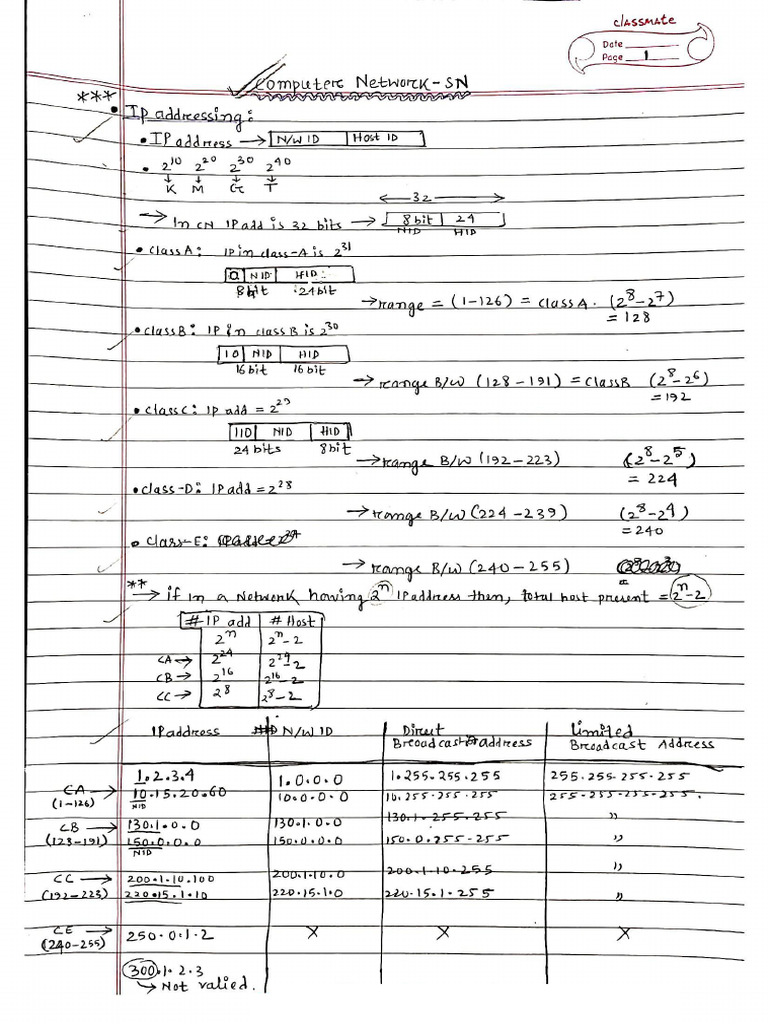 classmate
Date
Page 1
Computer Network-SN
***
• IP addressing:
• IP address → N/W ID | Host ID
• 2^10 2^20 2^30 2^40
K M G T
32
→ In CN IP add is 32 bits → 8bit | 24
NID HID
• class A: IP in class-A is 2^31
0 | NID | HID
8bit 24bit
→ range = (1-126) = class A. (2^8-2^7)
= 128
• class B: IP in class B is 2^30
10 | NID | HID
16bit 16bit
→ range B/W (128-191) = class B (2^8-2^6)
= 192
• class C: IP add = 2^29
110 | NID | HID
24 bits 8bit
→ range B/W (192-223) (2^8-2^5)
= 224
• class-D: IP add = 2^28
→ range B/W (224-239) (2^8-2^4)
= 240
• class-E:
→ range B/W (240-255)
**
→ if in a Network having 2^n IP address then, total host present = 2^n-2
#IP add | # Host
2^n | 2^n-2
CA → 2^24 | 2^24-2
CB → 2^16 | 2^16-2
CC → 2^8 | 2^8-2
IP address | N/W ID | Direct Broadcast address | Limited Broadcast Address
CA → (1-126) 1.2.3.4 | 1.0.0.0 | 1.255.255.255 | 255.255.255.255
10.15.20.60 | 10.0.0.0 | 10.255.255.255 | 255.255.255.255.
NID
CB → (128-191) 130.1.0.0 | 130.1.0.0 | 130.1.255.255 | "
150.0.0.0 | 150.0.0.0 | 150.0.255.255 | "
NID
CC → (192-223) 200.1.10.100 | 200.1.10.0 | 200.1.10.255 | "
220.15.1.10 | 220.15.1.0 | 220.15.1.255 | "
CE → (240-255) 250.0.1.2 | X | X | X
300.1.2.3
→ Not valied.